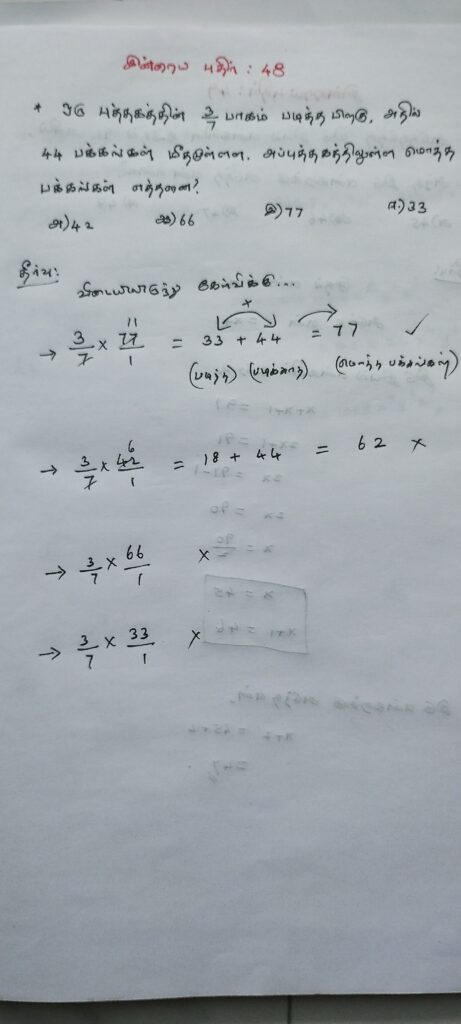 இன்றைய புதிர் : 48
* ஒரு புத்தகத்தின் 3/7 பாகம் படித்த பிறகு, அதில்
44 பக்கங்கள் மீதமுள்ளன. அப்புத்தகத்திலுள்ள மொத்த
பக்கங்கள் எத்தனை?
அ) 42 ஆ) 66 இ) 77 ஈ) 33
தீர்வு:
கேள்விக்கு...
→ 3/7 × 77/1 11 = 33 + 44 = 77 ✓
(படித்த) (படிக்காத) (மொத்த பக்கங்கள்)
→ 3/7 × 42/1 6 = 18 + 44 = 62 ×
→ 3/7 × 66/1 ×
→ 3/7 × 33/1 ×